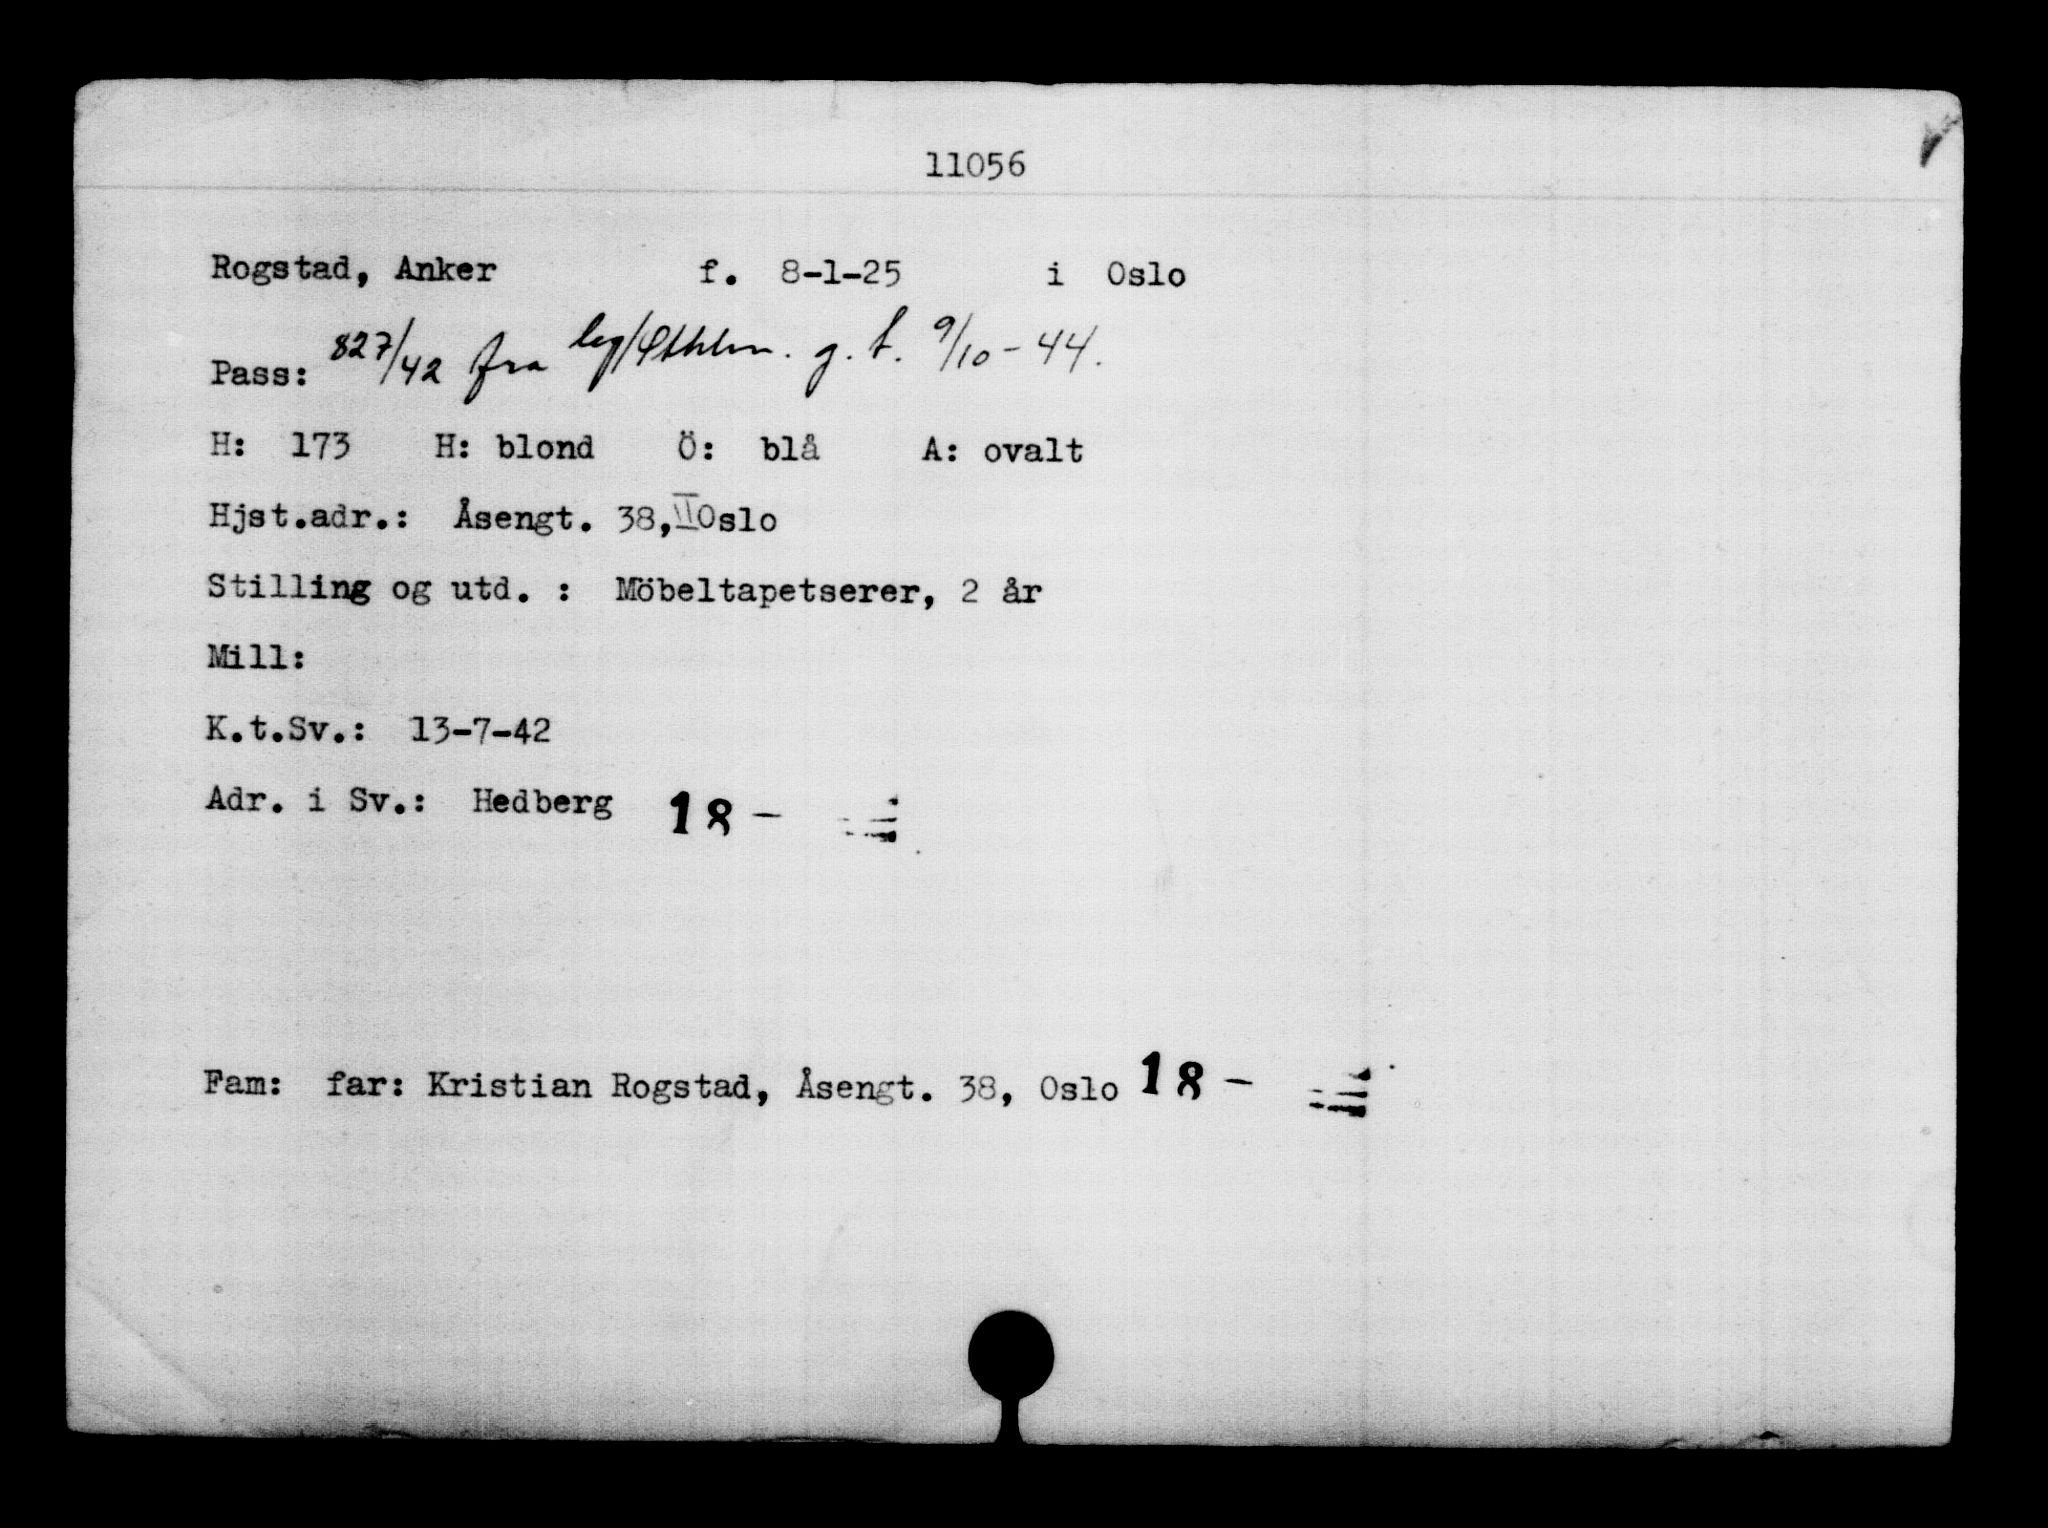 11056
Rogstad, Anker f. 8-1-25 i Oslo
Pass: 827/42 fra leg/Sthlm. g. t. 9/10-44.
H: 173 H: blond Ö: blå A: ovalt
Hjst.adr.: Åsengt. 38, II Oslo
Stilling og utd. : Möbeltapetserer, 2 år
Mill:
K.t.Sv.: 13-7-42
Adr. i Sv.: Hedberg 18 -
Fam: far: Kristian Rogstad, Åsengt. 38, Oslo 18 -